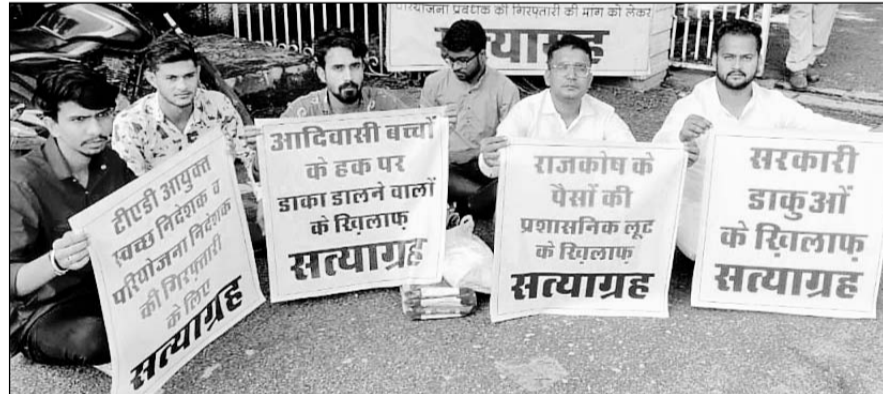 परियोजना प्रबंधक की गिरफ्तारी की मांग को लेकर
सत्याग्रह
टीएडी आयुक्त
स्वच्छ निदेशक व
परियोजना निदेशक
की गिरफ्तारी
के लिए
सत्याग्रह
आदिवासी बच्चों
के हक पर
डाका डालने वालों
के ख़िलाफ़
सत्याग्रह
राजकोष के
पैसों की
प्रशासनिक लूट
के ख़िलाफ़
सत्याग्रह
सरकारी
डाकुओं
के ख़िलाफ़
सत्याग्रह